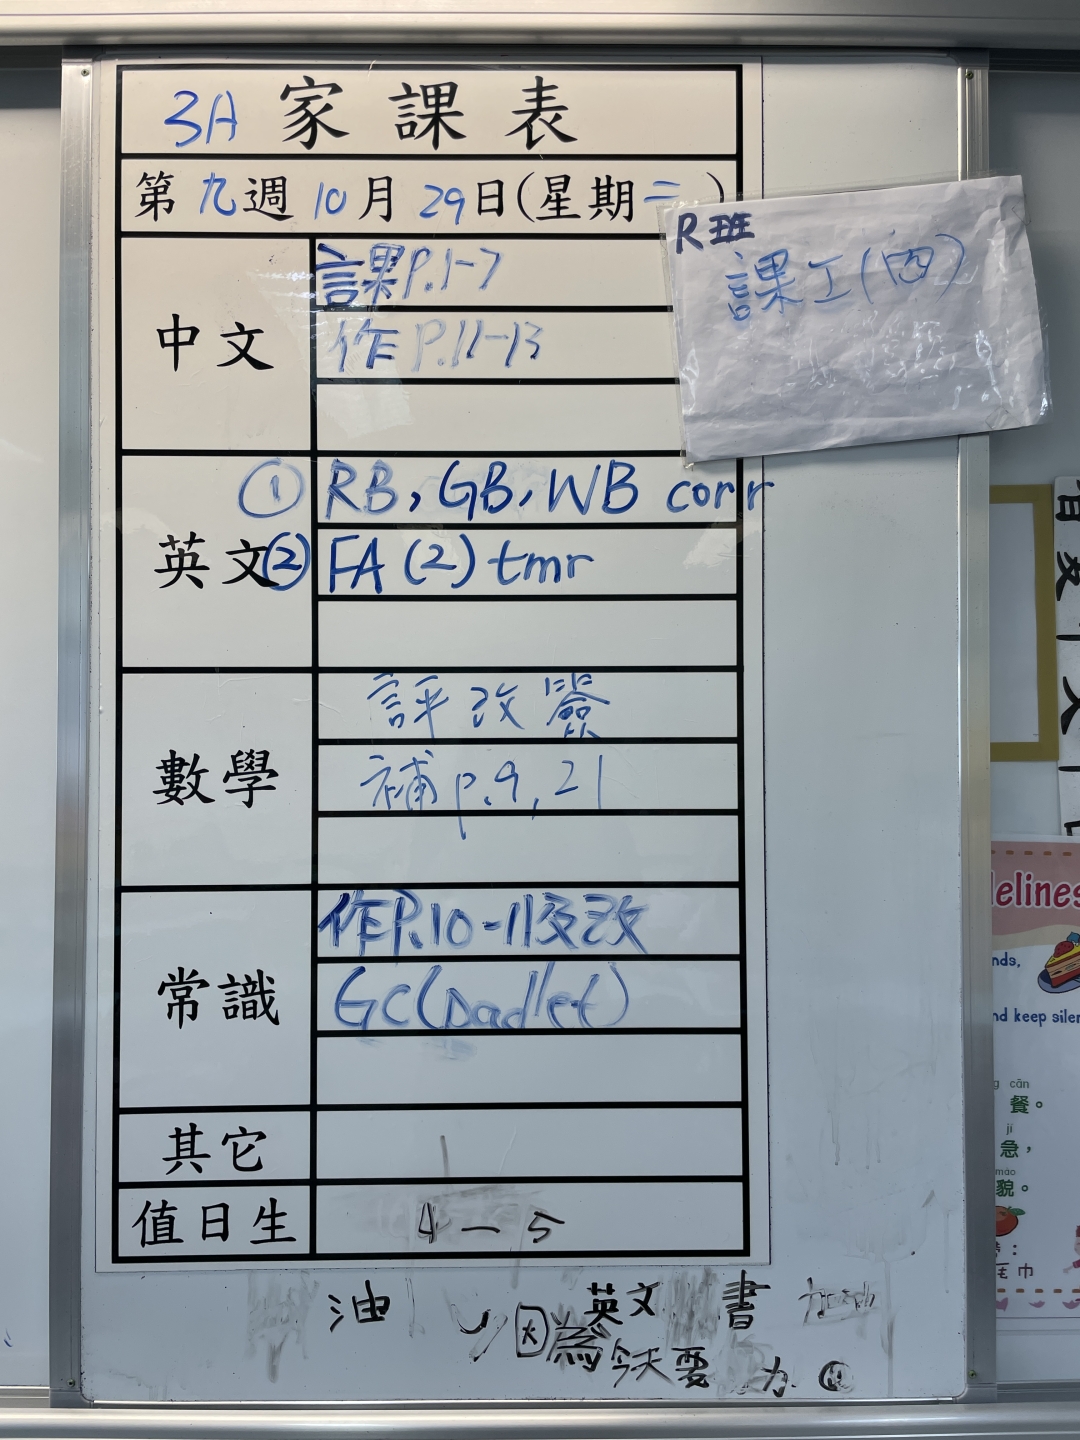 3A 家課表
第九週10月29日(星期二)
R班
課工(四)
中文
課P.1-7
作P.11-13
英文
① RB, GB, WB corr
② FA (2) tmr
數學
評改簽
補p.9, 21
常識
作P.10-11及改
GC(padlet)
其它
值日生
4-5
油
英文
書
因為
今天要
力
lelines
nds,
nd keep silen
g cān
餐。
jí
急，
mào
貌。
毛巾